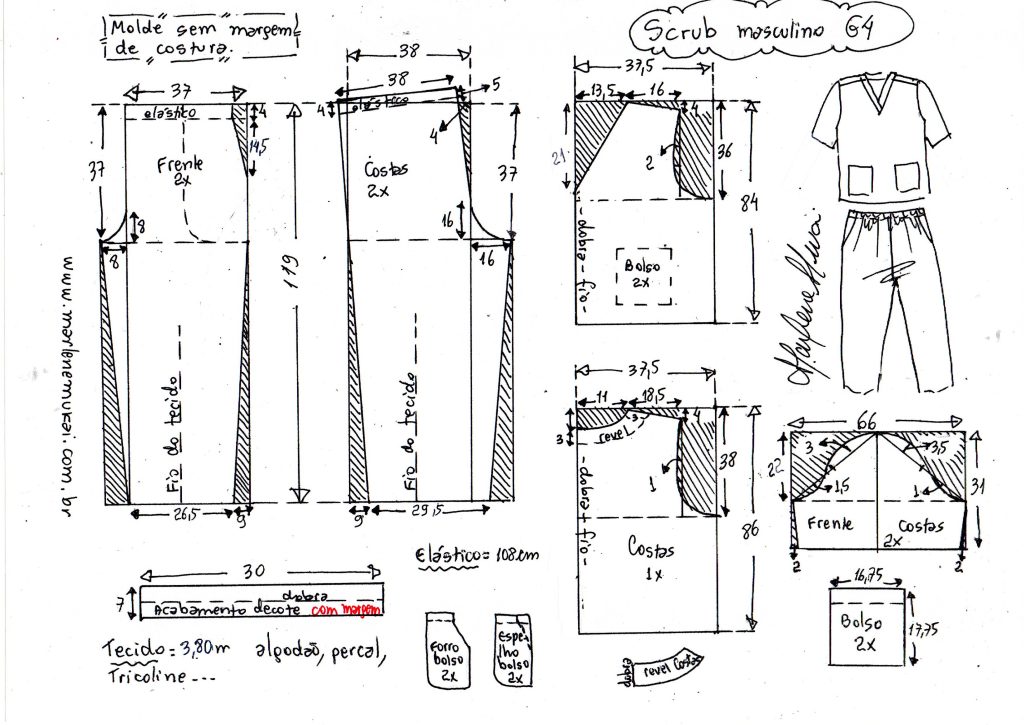 Molde sem margem
de costura.
Scrub masculino G4
37
elástico
4
14,5
Frente
2x
37
8
8
Fio do tecido
26,5
9
119
38
38
5
4
elástico
4
Costas
2x
37
16
16
Fio do tecido
9
29,5
37,5
13,5
16
4
21
2
36
84
- dobra - fio -
Bolso
2x
37,5
11
18,5
4
3
3
revel
1
38
86
- dobra - fio -
Costas
1x
66
3
3,5
22
31
1,5
1
Frente
Costas
2x
2
2
www.marlenemukai.com.br
Elástico = 108 cm
30
7
dobra
Acabamento decote com margem
Tecido = 3,80m algodão, percal,
Tricoline ---
Forro
bolso
2x
Espe-
lho
bolso
2x
dobra
revel Costas
16,75
Bolso
2x
17,75
Marlene Mukai